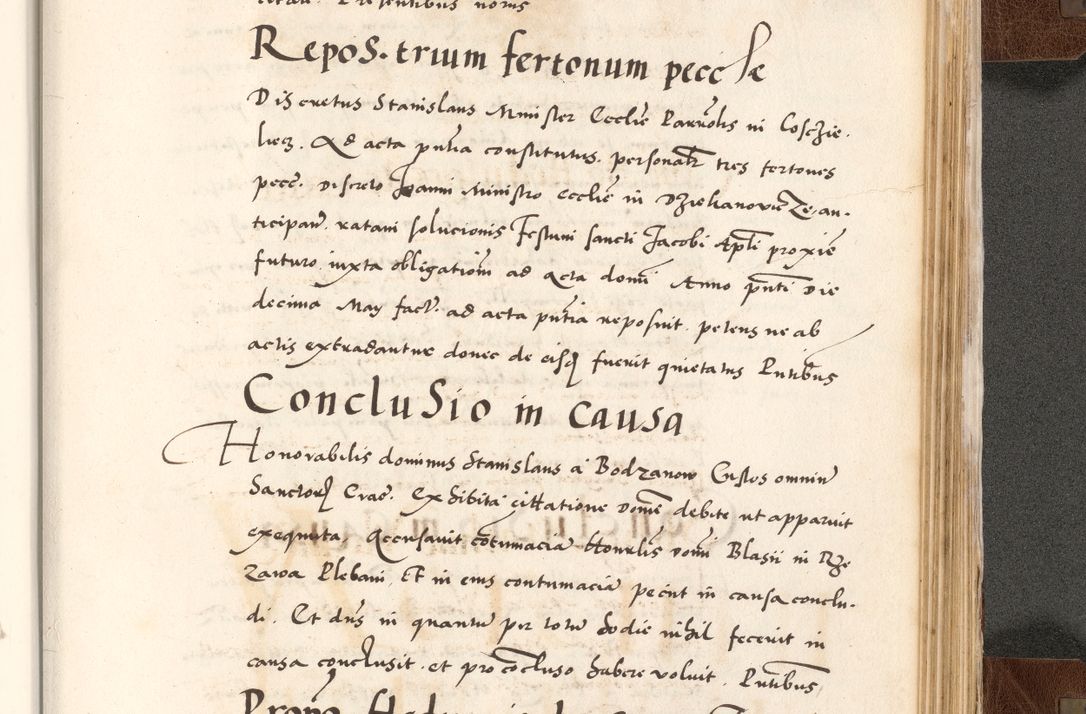 Repos. trium fertonum pecc le
Discretus Stanislaus Minister Ecclie Parrolis in Coschie.
licz. Ad acta pntia constitutus. personalr tres fertones
pecc. Discreto Joanni Ministro ecclie in Dziekanovicze an.
ticipan. ratam solucionis Festum sancti Jacobi Apli proxie
futuro iuxta obligationm ad acta domi Anno pnti Die
decima May fact. ad acta pntia reposuit. petens ne ab
actis extradantur donec de eisq fuerit quietatus Pntibus
Conclusio in causa
Honorabilis dominus Stanislaus a Bodzanow Custos omniu
Sanctor Crac. Exhibita citatione Dome debite ut apparuit
exequuta, Accusavit cotumacia Honrlis domi Blasii in Rze
zawa Plebani, Et in eius contumacia petiit in causa conclu.
di. Et dns in quantu per totu hodie nihil fecerit in
causa conclusit. et pro cocluso habere voluit. Pntibus